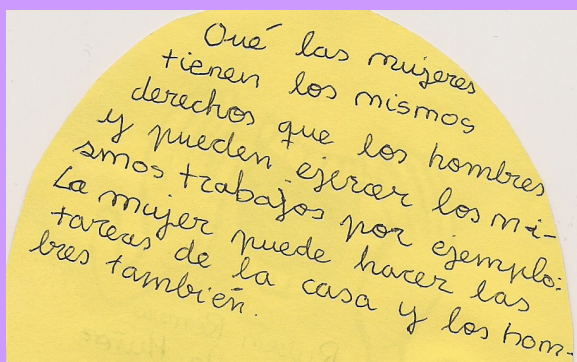 Qué las mujeres
tienen los mismos
derechos que los hombres
y pueden ejercer los mi-
smos trabajos por ejemplo:
La mujer puede hacer las
tareas de la casa y los hom-
bres también.